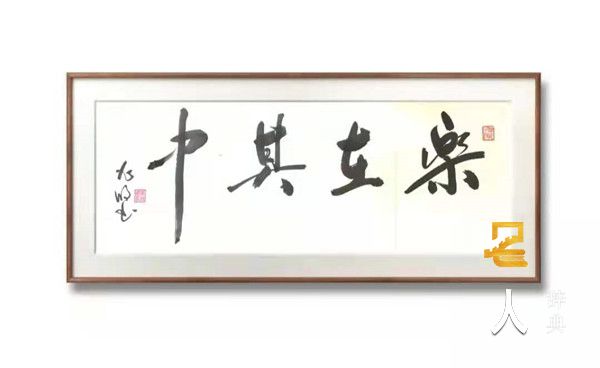 樂在其中
人
辞典